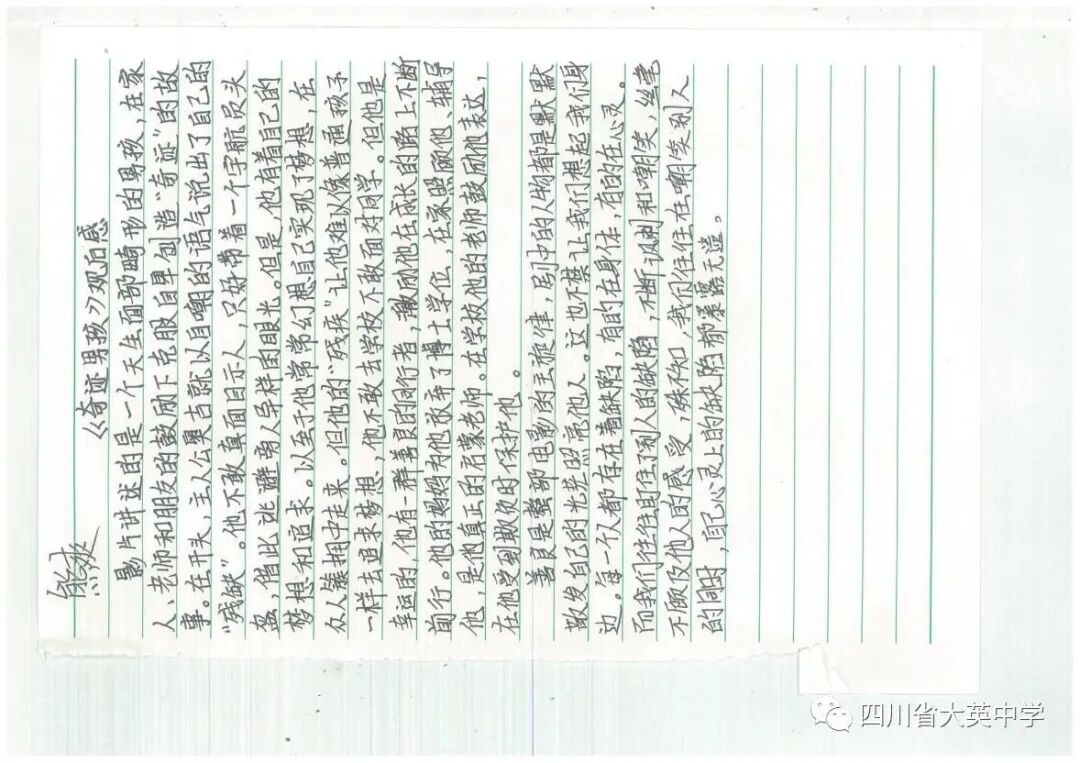 熊爽
《奇迹男孩》观后感
影片讲述的是一个天生面部畸形的男孩，在家
人、老师和朋友的鼓励下克服自卑创造“奇迹”的故
事。在开头，主人公奥吉就以自嘲的语气说出了自己的
“残缺”。他不敢真面目示人，只好带着一个宇航员头
盔，借此逃避旁人异样的眼光。但是，他有着自己的
梦想和追求。以至于他常常幻想自己实现了梦想，在
众人簇拥中走来。但他的“残疾”让他难以像普通孩子
一样去追求梦想，他不敢去学校不敢面对同学。但他是
幸运的，他有一群善良的同行者，激励他在成长的路上不断
前行。他的妈妈为他放弃了博士学位，在家照顾他、辅导
他，是他真正的启蒙老师。在学校他的老师鼓励他表达，
在他受到欺负时保护他。
善良是整部电影的主旋律，剧中的人物都是默默
散发自己的光芒照亮他人。这也不禁让我们想起我们身
边。每一个人都存在着缺陷，有的在身体，有的在心灵。
而我们往往盯住了别人的缺陷，不断讽刺和嘲笑，丝毫
不顾及他人的感受，殊不知，我们往往在嘲笑别人
的同时，自己心灵上的缺陷都暴露无遗。
四川省大英中学